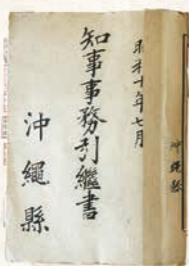 昭和十年七月
知事事務引継書
沖縄縣
沖縄縣